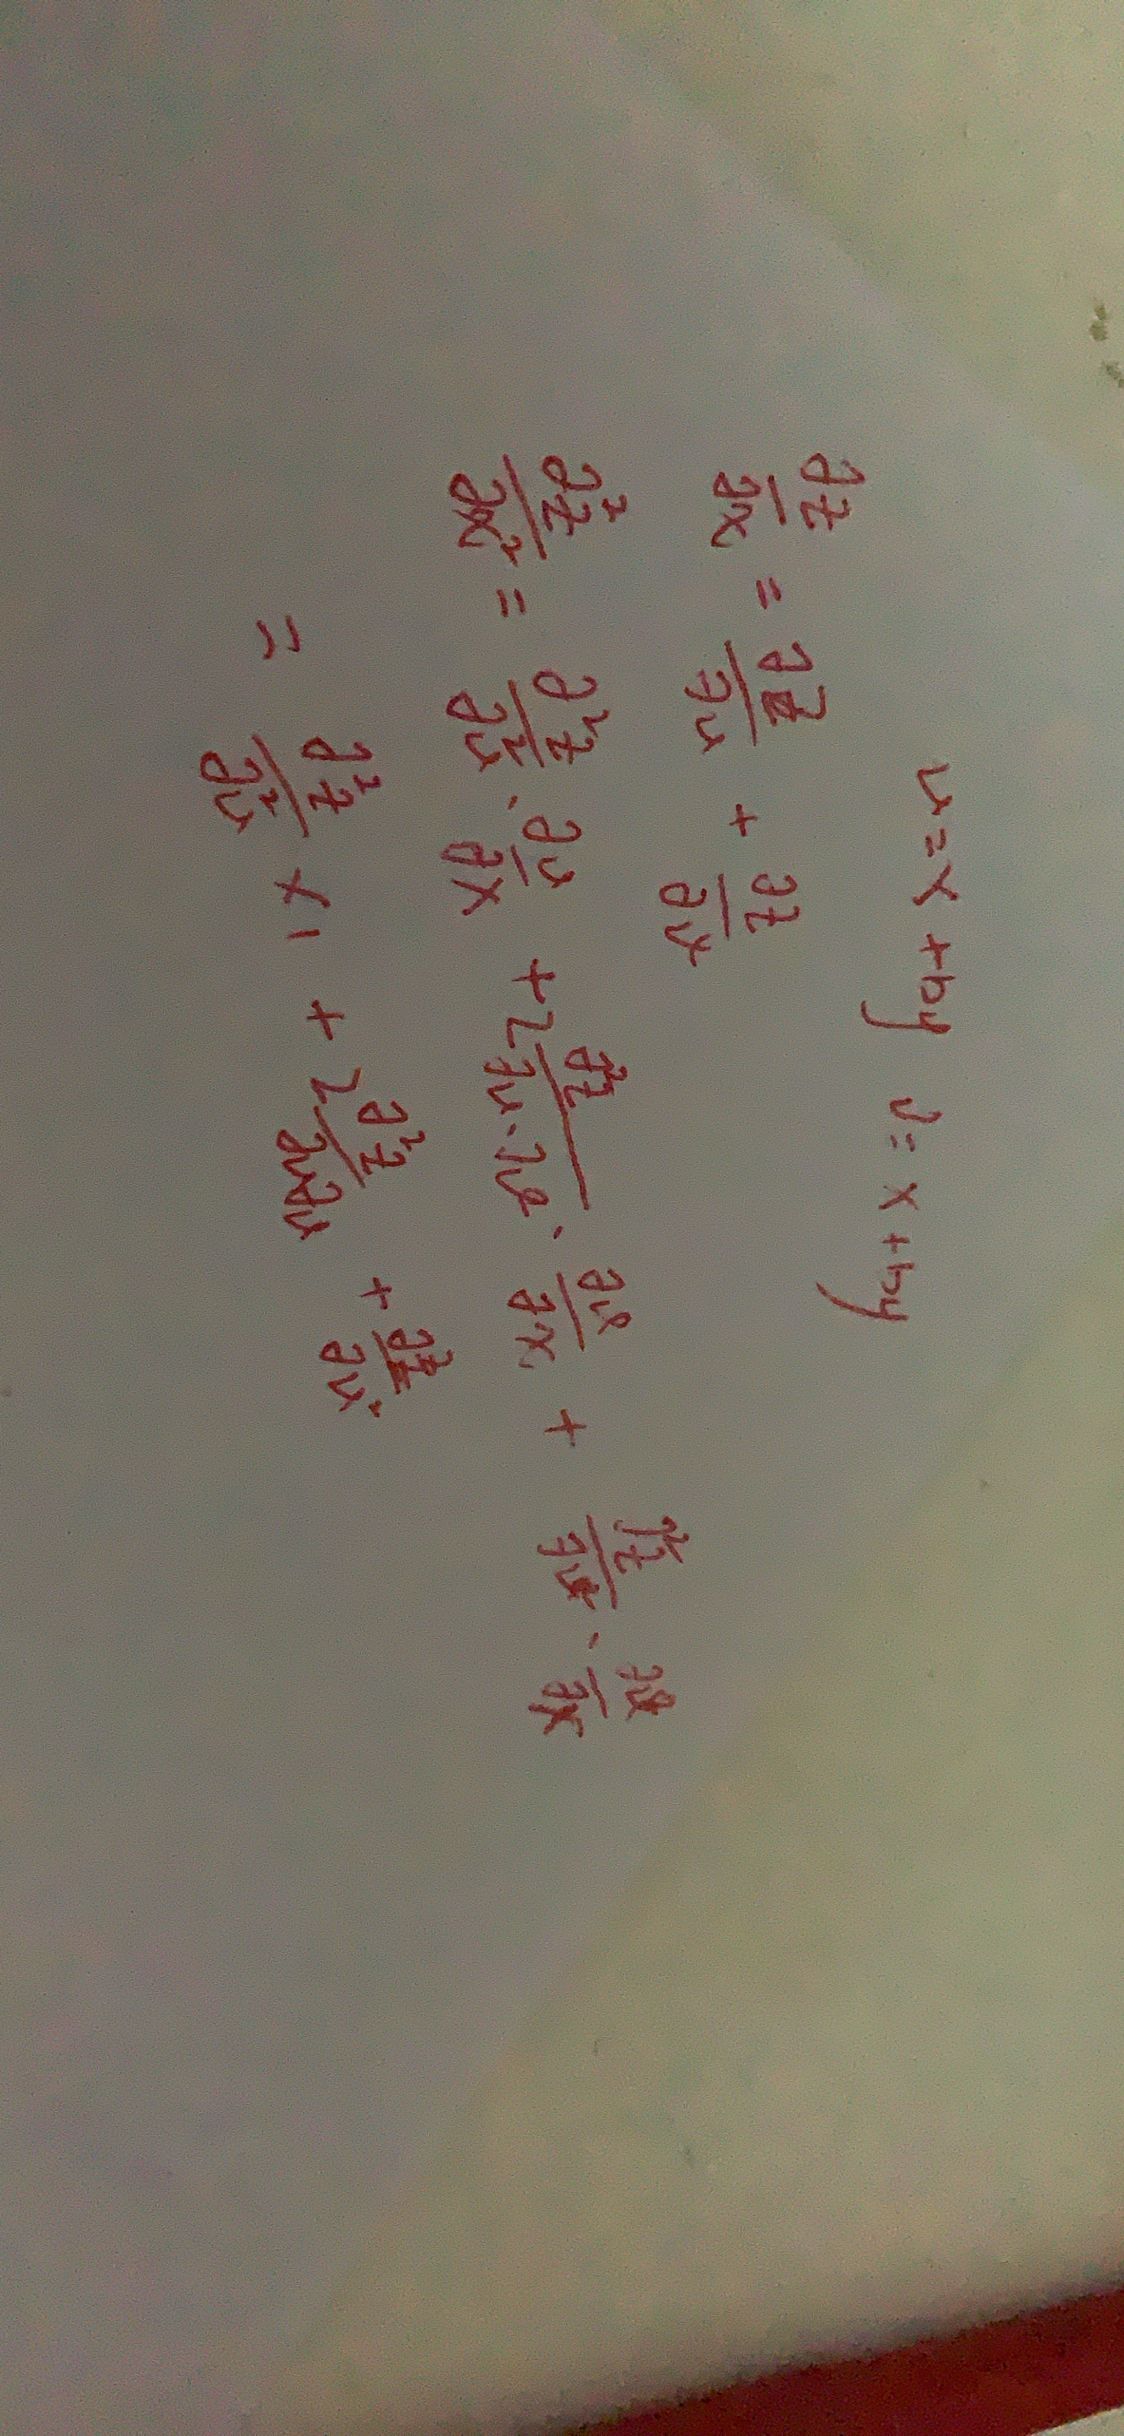 u = x + by   v = x + by
∂z/∂x = ∂z/∂u + ∂z/∂v
∂²z/∂x² = ∂²z/∂u² · ∂u/∂x + 2 ∂²z/∂u·∂v · ∂v/∂x + ∂²z/∂v² · ∂v/∂x
= ∂²z/∂u² × 1 + 2 ∂²z/∂u∂v + ∂²z/∂v²